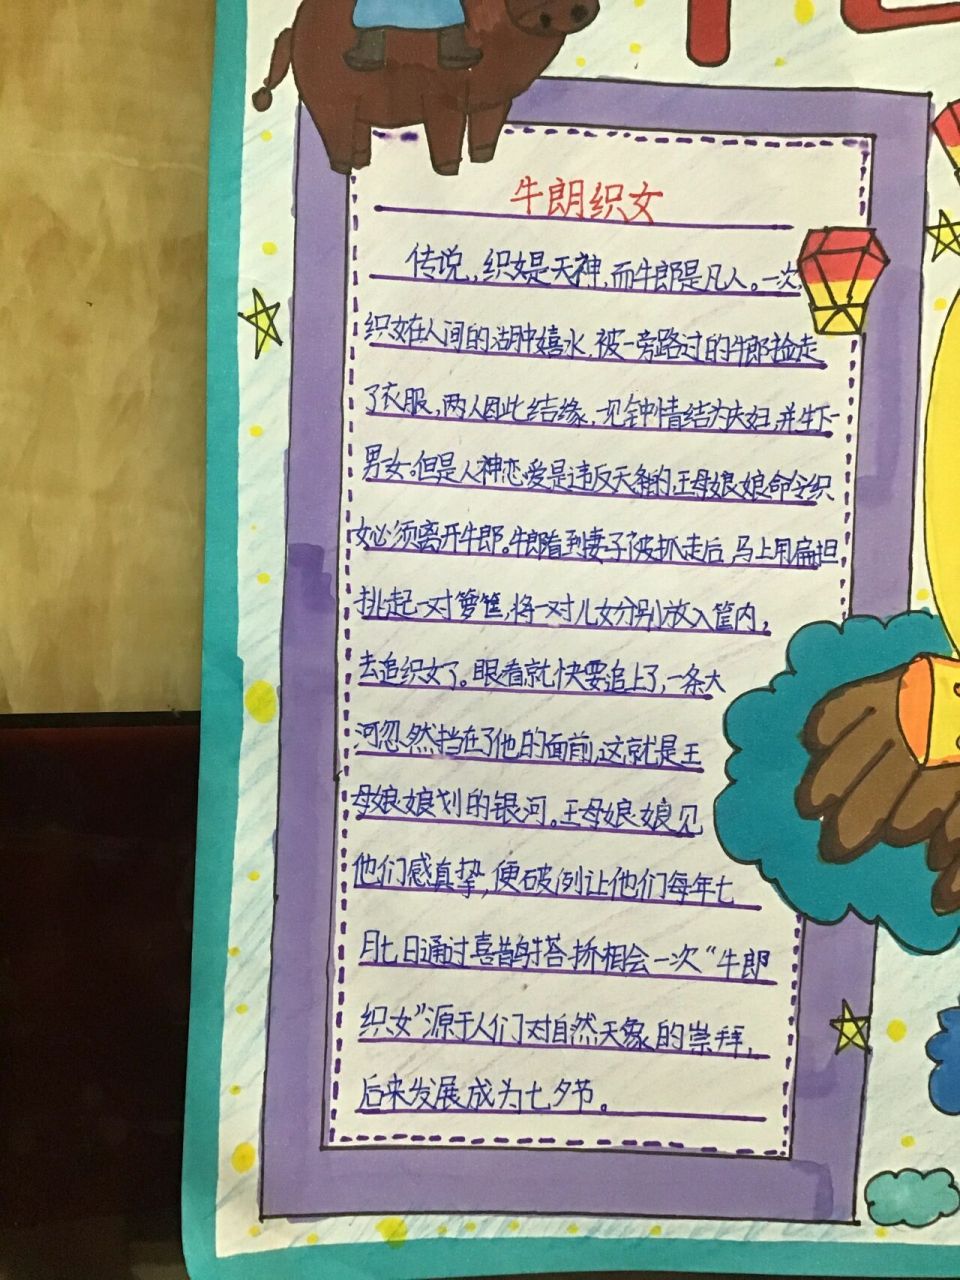 牛朗织女
传说,织女是天神,而牛郎是凡人。一次,
织女在人间的湖中嬉水,被一旁路过的牛郎捡走
了衣服,两人因此结缘,一见钟情结为夫妇,并生下一
男女。但是人神恋爱是违反天条的,王母娘娘命令织
女必须离开牛郎。牛郎看到妻子被抓走后,马上用扁担
挑起一对箩筐,将一对儿女分别放入筐内,
去追织女了。眼看就快要追上了,一条大
河忽然挡在了他的面前,这就是王
母娘娘划的银河。王母娘娘见
他们感真挚,便破例让他们每年七
月七日通过喜鹊搭桥相会一次“牛郎
织女”源于人们对自然天象的崇拜,
后来发展成为七夕节。